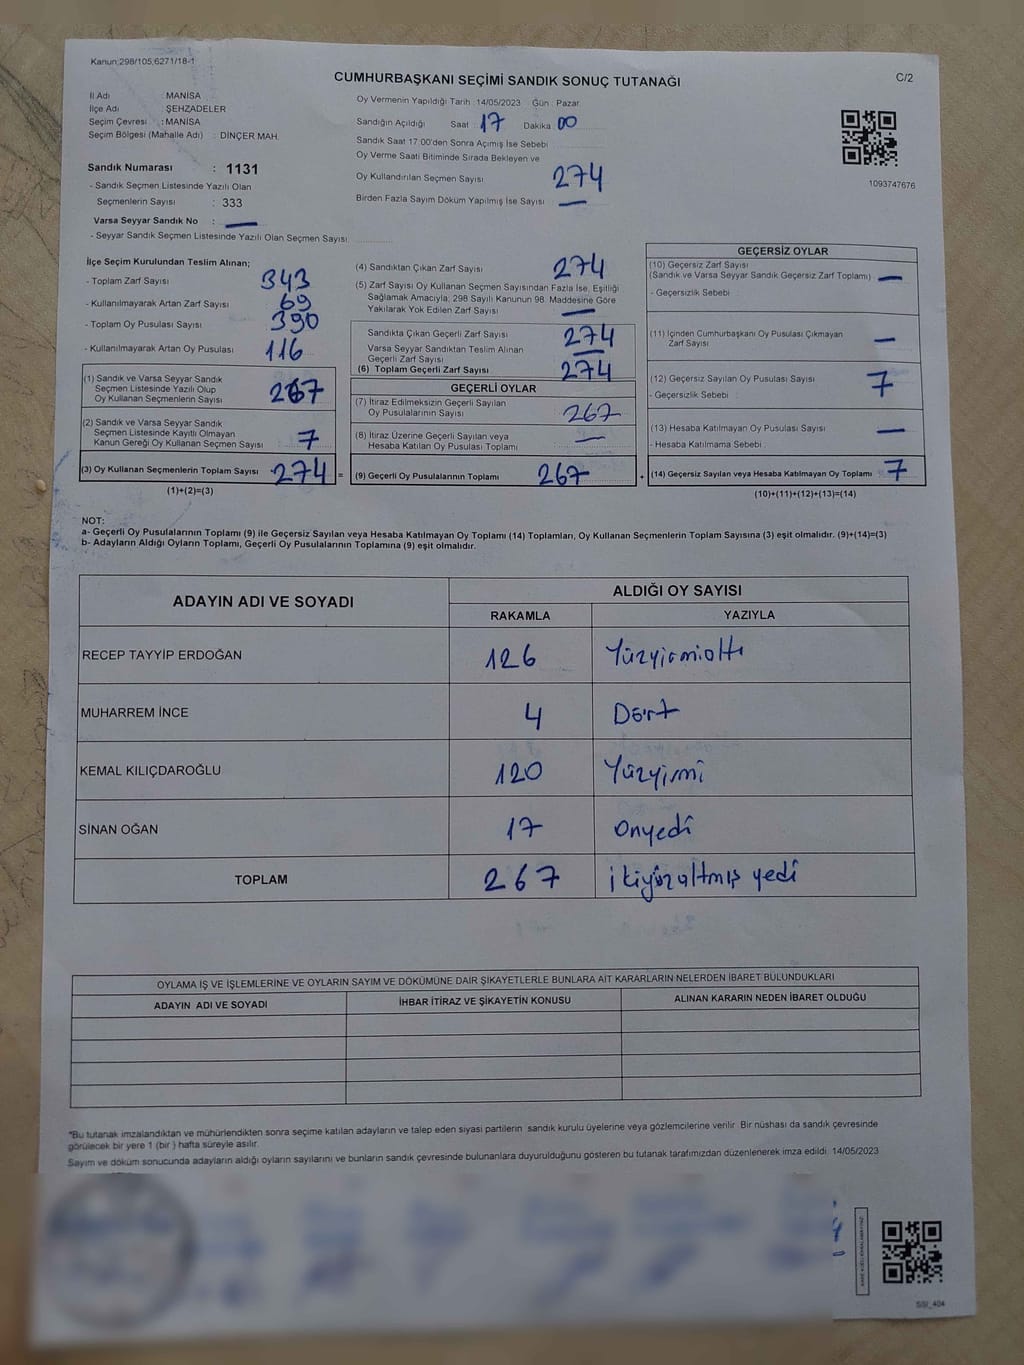 Kanun;298/105,6271/18-1
CUMHURBAŞKANI SEÇİMİ SANDIK SONUÇ TUTANAĞI
C/2
İl Adı : MANİSA
İlçe Adı : ŞEHZADELER
Seçim Çevresi : MANİSA
Seçim Bölgesi (Mahalle Adı) : DİNÇER MAH.
Sandık Numarası : 1131
- Sandık Seçmen Listesinde Yazılı Olan
Seçmenlerin Sayısı : 333
Varsa Seyyar Sandık No : —
- Seyyar Sandık Seçmen Listesinde Yazılı Olan Seçmen Sayısı
Oy Vermenin Yapıldığı Tarih : 14/05/2023 Gün : Pazar
Sandığın Açıldığı Saat : 17 Dakika : 00
Sandık Saat 17.00'den Sonra Açımış İse Sebebi
Oy Verme Saati Bitiminde Sırada Bekleyen ve
Oy Kullandırılan Seçmen Sayısı 274
Birden Fazla Sayım Döküm Yapılmış İse Sayısı —
1093747676
İlçe Seçim Kurulundan Teslim Alınan;
- Toplam Zarf Sayısı 343
- Kullanılmayarak Artan Zarf Sayısı 69
- Toplam Oy Pusulası Sayısı 390
- Kullanılmayarak Artan Oy Pusulası 116
(1) Sandık ve Varsa Seyyar Sandık
Seçmen Listesinde Yazılı Olup
Oy Kullanan Seçmenlerin Sayısı 267
(2) Sandık ve Varsa Seyyar Sandık
Seçmen Listesinde Kayıtlı Olmayan
Kanun Gereği Oy Kullanan Seçmen Sayısı 7
(3) Oy Kullanan Seçmenlerin Toplam Sayısı 274 =
(1)+(2)=(3)
(4) Sandıktan Çıkan Zarf Sayısı 274
(5) Zarf Sayısı Oy Kullanan Seçmen Sayısından Fazla İse, Eşitliği
Sağlamak Amacıyla, 298 Sayılı Kanunun 98. Maddesine Göre
Yakılarak Yok Edilen Zarf Sayısı —
Sandıkta Çıkan Geçerli Zarf Sayısı 274
Varsa Seyyar Sandıktan Teslim Alınan
Geçerli Zarf Sayısı —
(6) Toplam Geçerli Zarf Sayısı 274
GEÇERLİ OYLAR
(7) İtiraz Edilmeksizin Geçerli Sayılan
Oy Pusulalarının Sayısı 267
(8) İtiraz Üzerine Geçerli Sayılan veya
Hesaba Katılan Oy Pusulası Toplamı —
(9) Geçerli Oy Pusulalarının Toplamı 267 +
GEÇERSİZ OYLAR
(10) Geçersiz Zarf Sayısı
(Sandık ve Varsa Seyyar Sandık Geçersiz Zarf Toplamı) —
- Geçersizlik Sebebi :
(11) İçinden Cumhurbaşkanı Oy Pusulası Çıkmayan
Zarf Sayısı —
(12) Geçersiz Sayılan Oy Pusulası Sayısı 7
- Geçersizlik Sebebi :
(13) Hesaba Katılmayan Oy Pusulası Sayısı —
- Hesaba Katılmama Sebebi :
(14) Geçersiz Sayılan veya Hesaba Katılmayan Oy Toplamı 7
(10)+(11)+(12)+(13)=(14)
NOT:
a- Geçerli Oy Pusulalarının Toplamı (9) ile Geçersiz Sayılan veya Hesaba Katılmayan Oy Toplamı (14) Toplamları, Oy Kullanan Seçmenlerin Toplam Sayısına (3) eşit olmalıdır. (9)+(14)=(3)
b- Adayların Aldığı Oyların Toplamı, Geçerli Oy Pusulalarının Toplamına (9) eşit olmalıdır.
ADAYIN ADI VE SOYADI ALDIĞI OY SAYISI
RAKAMLA YAZIYLA
RECEP TAYYİP ERDOĞAN 126 Yüzyirmialtı
MUHARREM İNCE 4 Dört
KEMAL KILIÇDAROĞLU 120 Yüzyirmi
SİNAN OĞAN 17 Onyedi
TOPLAM 267 ikiyüzaltmış yedi
OYLAMA İŞ VE İŞLEMLERİNE VE OYLARIN SAYIM VE DÖKÜMÜNE DAİR ŞİKAYETLERLE BUNLARA AİT KARARLARIN NELERDEN İBARET BULUNDUKLARI
ADAYIN ADI VE SOYADI İHBAR İTİRAZ VE ŞİKAYETİN KONUSU ALINAN KARARIN NEDEN İBARET OLDUĞU
*Bu tutanak imzalandıktan ve mühürlendikten sonra seçime katılan adayların ve talep eden siyasi partilerin sandık kurulu üyelerine veya gözlemcilerine verilir. Bir nüshası da sandık çevresinde
görülecek bir yere 1 (bir ) hafta süreyle asılır.
Sayım ve döküm sonucunda adayların aldığı oyların sayılarını ve bunların sandık çevresinde bulunanlara duyurulduğunu gösteren bu tutanak tarafımızdan düzenlenerek imza edildi. 14/05/2023
SSI_404